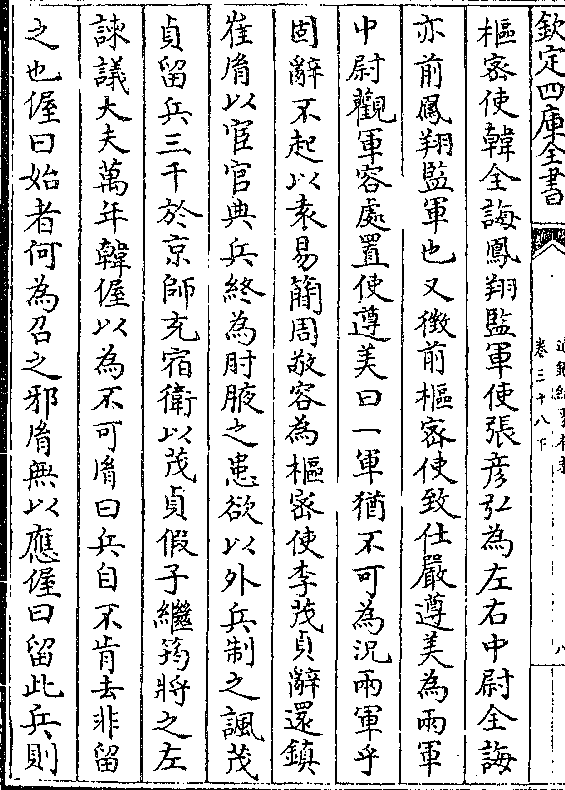 欽定四庫全書
卷三十八下
樞密使韓全誨鳳翔監軍使張彦弘為左右中尉全誨
亦前鳳翔監軍也又徴前樞密使致仕嚴遵美為兩軍
中尉觀軍容處置使遵美曰一軍猶不可為况兩軍乎
固辭不起以袁易簡周敬容為樞密使李茂貞辭還鎮
崔𦙍以宦官典兵終為肘腋之患欲以外兵制之諷茂
貞留兵三千於京師充宿衛以茂貞假子繼筠將之左
諫議大夫萬年韓偓以為不可𦙍曰兵自不肯去非留
之也偓曰始者何為召之邪𦙍無以應偓曰留此兵則